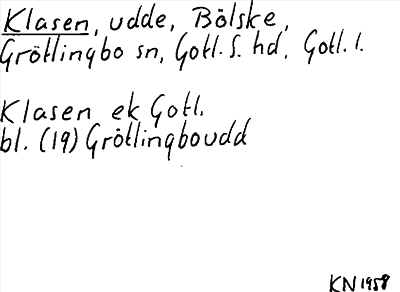 Klasen, udde, Bölske,
Grötlingbo sn, Gotl. S. hd, Gotl. l.
Klasen ek Gotl.
bl. (19) Grötlingboudd
KN 1958